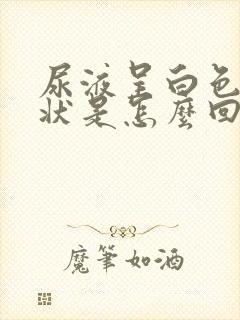 尿液呈白色
状是怎麼回
魔筆如酒